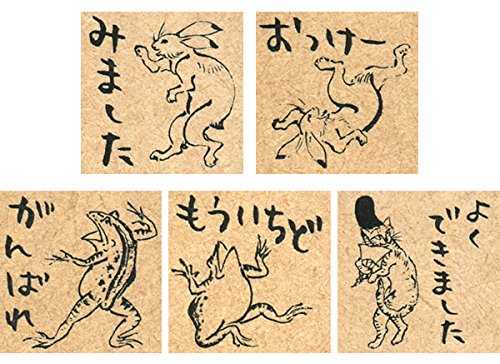 みました
おっけー
がんばれ
もういちど
よく
できました